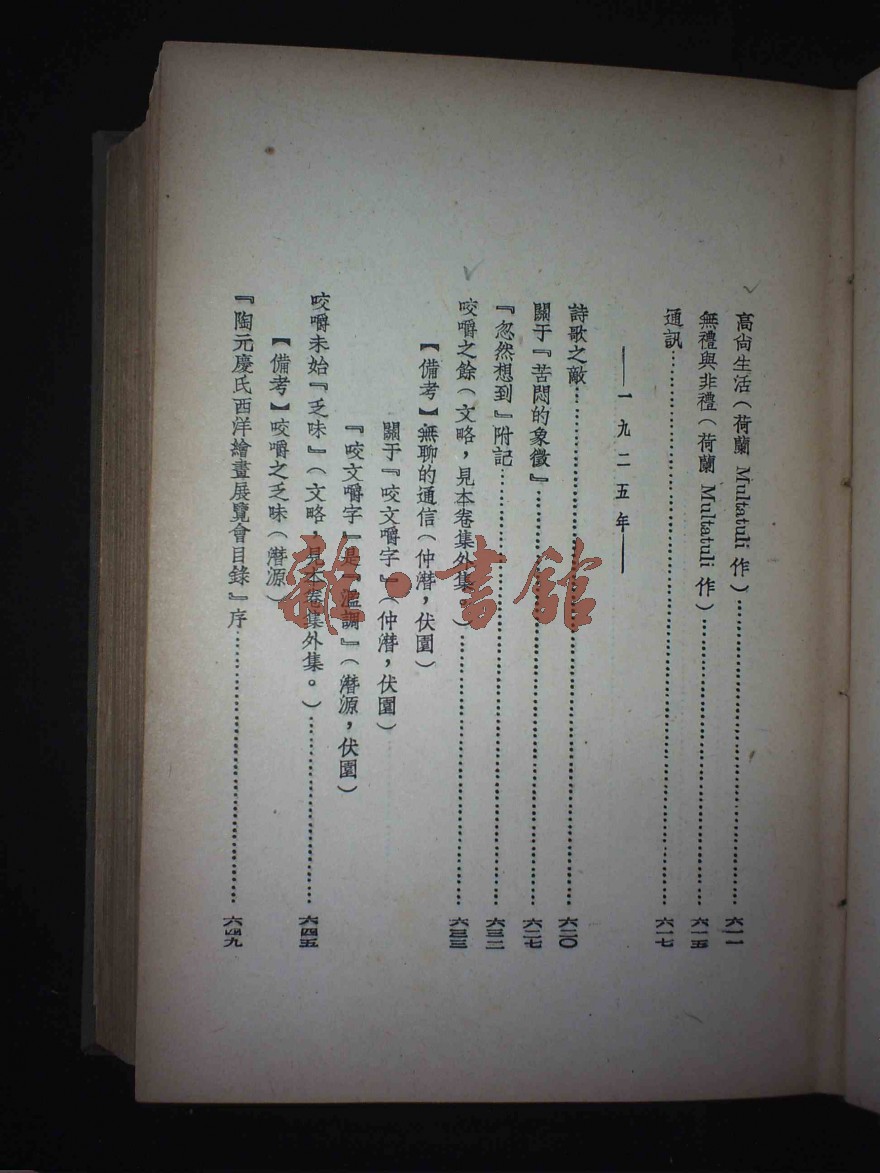 高尙生活（荷蘭 Multatuli 作）……六一一
無禮與非禮（荷蘭 Multatuli 作）……六一五
通訊……六一七
——一九二五年——
詩歌之敵……六二〇
關于『苦悶的象徵』……六二七
『忽然想到』附記……六三二
咬嚼之餘（文略，見本卷集外集。）……六三三
【備考】無聊的通信（仲潛，伏園）
關于『咬文嚼字』（仲潛，伏園）
『咬文嚼字』是『濫調』（潛源，伏園）
咬嚼未始『乏味』（文略，見本卷集外集。）……六四五
【備考】咬嚼之乏味（潛源）
『陶元慶氏西洋繪畫展覽會目錄』序……六四九
雜·書館